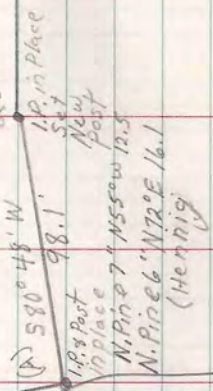 (A) S80°48'W
98.1'
I.P. in place
Set
New
Post
I.P. & Post
in place
N. Pine 7" N55°W 12.5
N. Pine 6" N72°E 16.1
(Hennig)